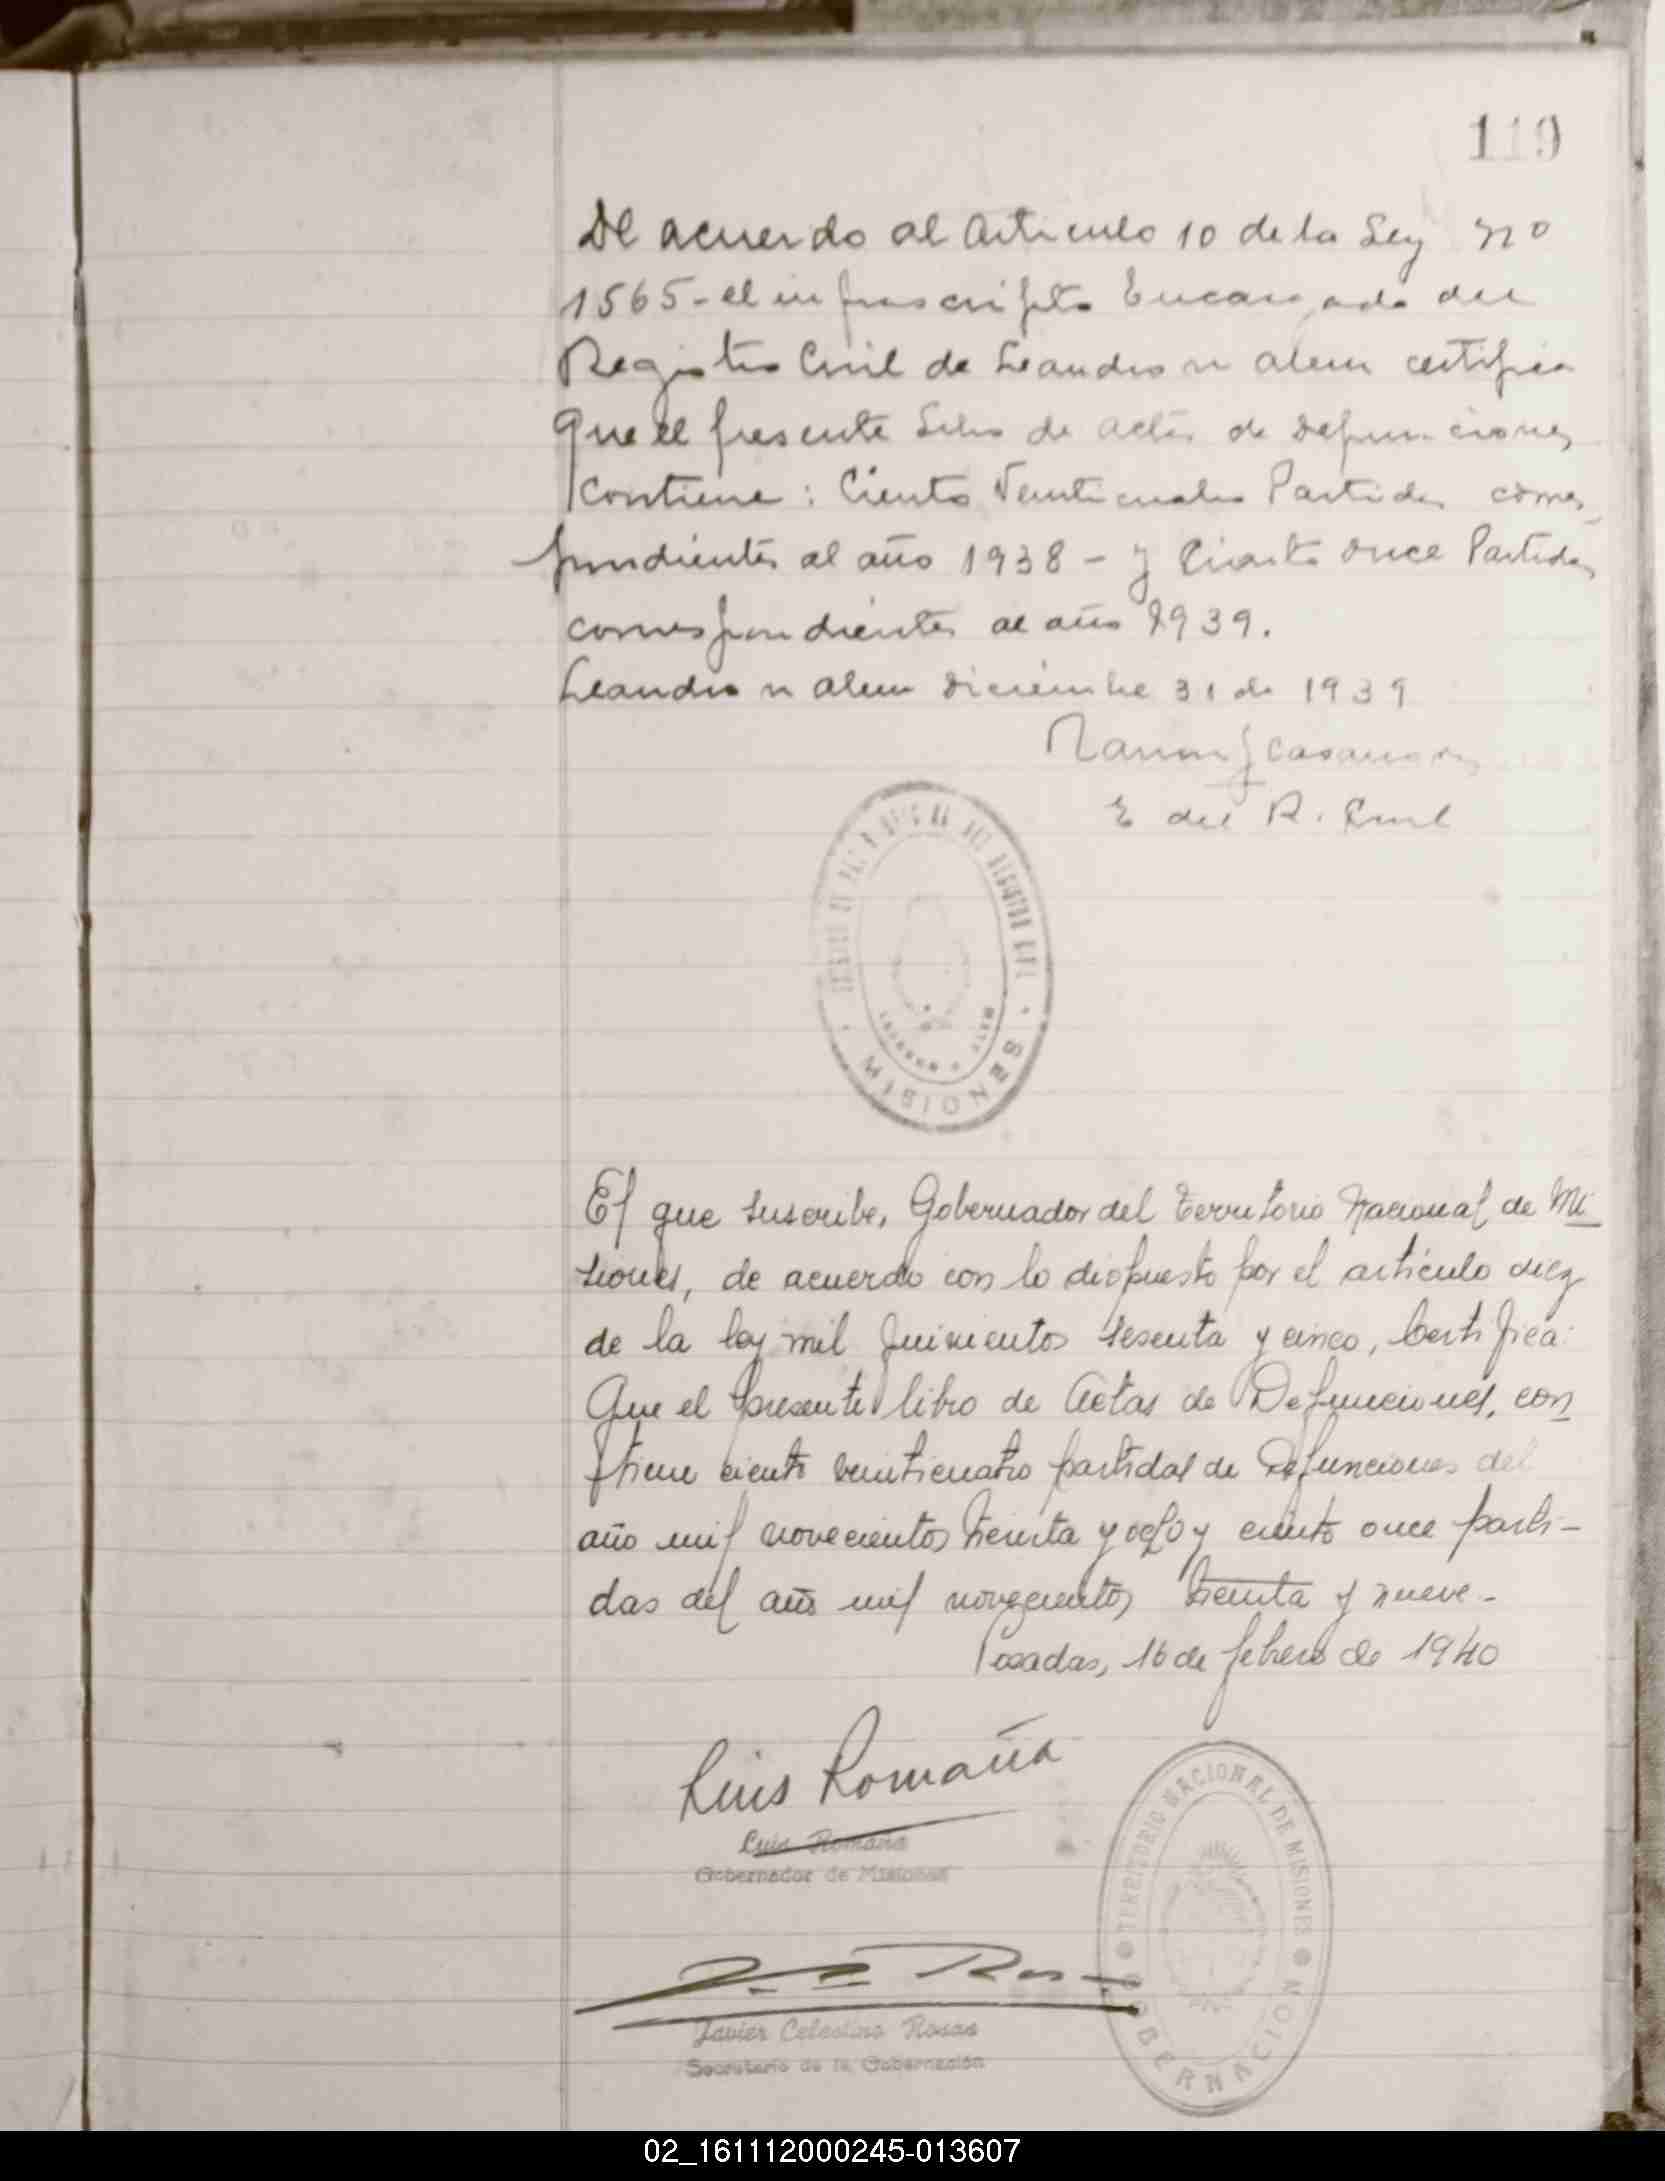 119
De acuerdo al Articulo 10 de la Ley Nº
1565 - el infrascripto Encargado del
Registro Civil de Leandro N Alem certifica
Que el presente Libro de actas de Defunciones
contiene: Ciento Veinticuatro Partidas corres
pondientes al año 1938 - y Ciento Once Partidas
correspondientes al año 1939.
Leandro N Alem Diciembre 31 de 1939
Ramon J Casanova
E del R. Civil
JUZGADO DE PAZ Y OFIC DE DEL REGISTRO CIVIL
MISIONES
El que suscribe, Gobernador del Territorio Nacional de Mi
siones, de acuerdo con lo dispuesto por el artículo diez
de la ley mil quinientos sesenta y cinco, Certifica:
Que el presente libro de Actas de Defunciones, con
tiene ciento veinticuatro partidas de Defunciones del
año mil novecientos treinta y ocho y ciento once parti-
das del año mil novecientos treinta y nueve.-
Posadas, 16 de febrero de 1940
Luis Romaña
Luis Romaña
Gobernador de Misiones
TERRITORIO NACIONAL DE MISIONES
GOBERNACION
J. C. Rosas
Javier Celestino Rosas
Secretario de la Gobernación
02_161112000245-013607